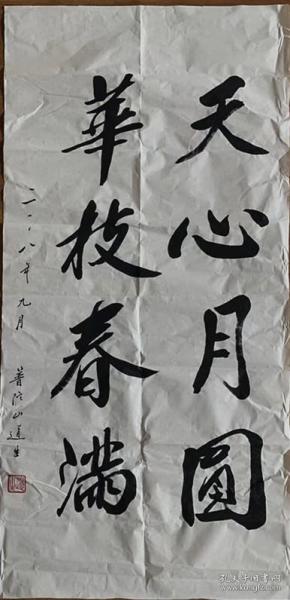 天心月圓
華枝春滿
二〇一八年九月
普陀山道生
孔夫子旧书网